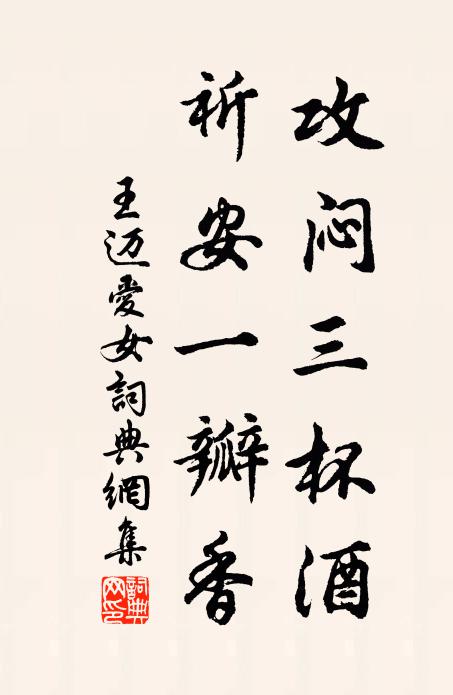 攻闷三杯酒
祈安一瓣香
王迈爱女詞典網集
詞典网印